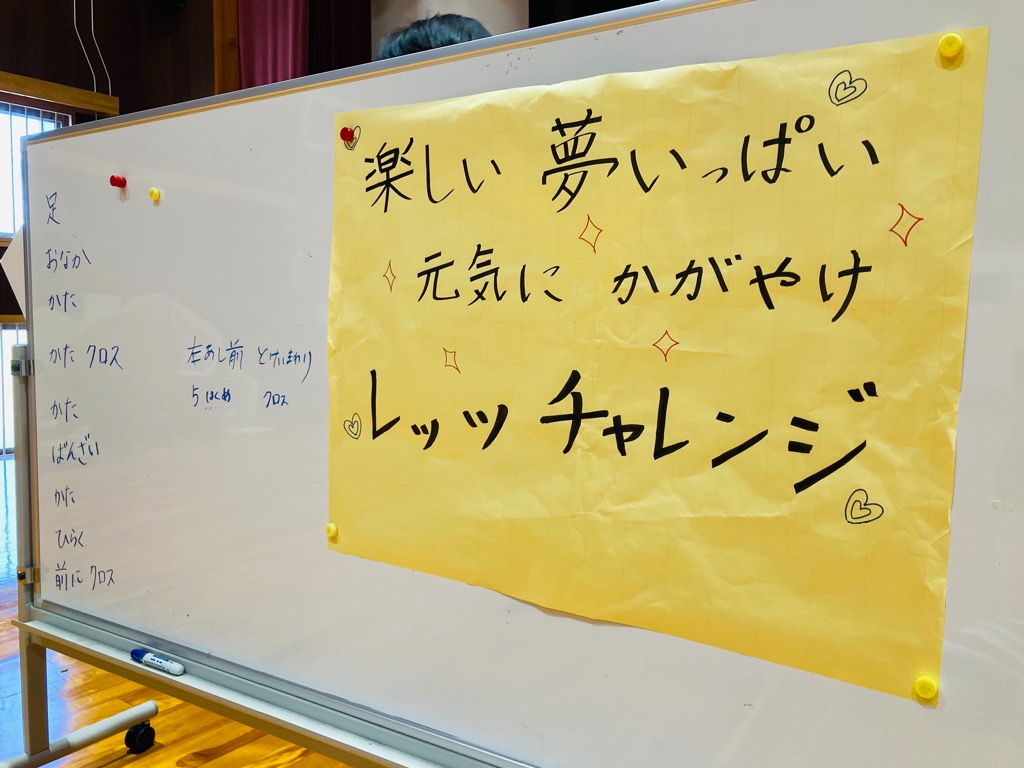 足
おなか
かた
かた クロス
かた
ばんざい
かた
ひらく
前に クロス
左あし前 とけいまわり
5はくめ クロス
楽しい 夢いっぱい
元気に かがやけ
レッツ チャレンジ